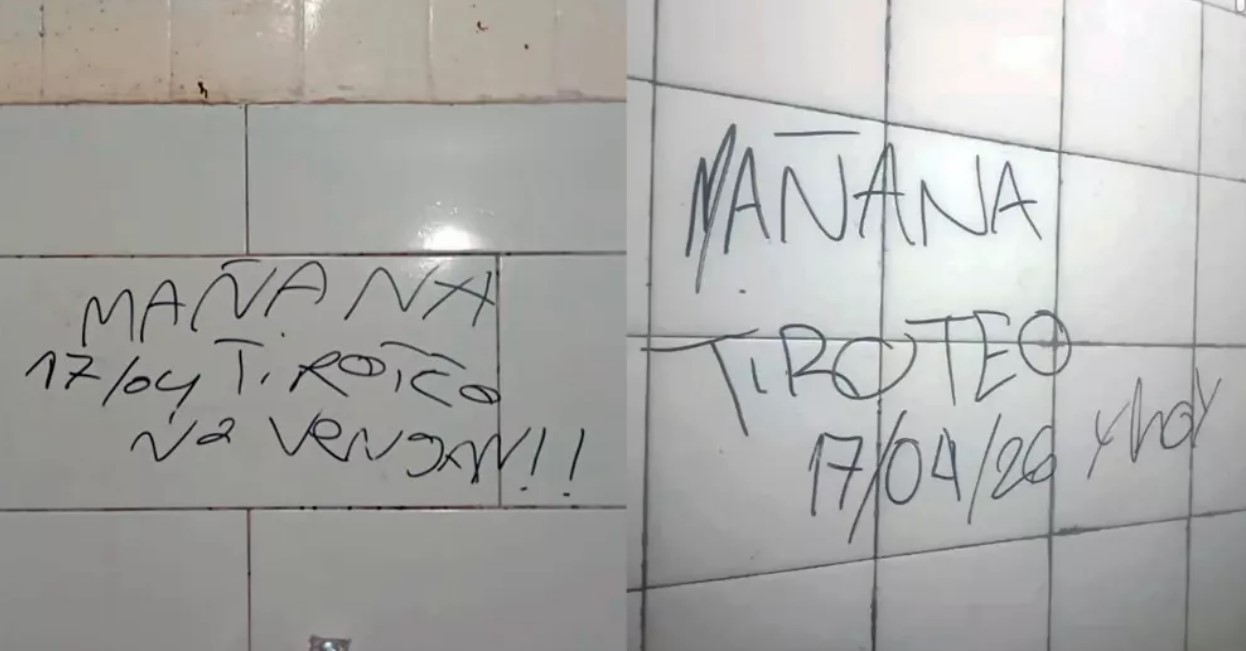 MAÑANA
17/04 TiROTEO
No VENgAN!!
MAÑANA
TiROTEO
17/04/26 y hoy